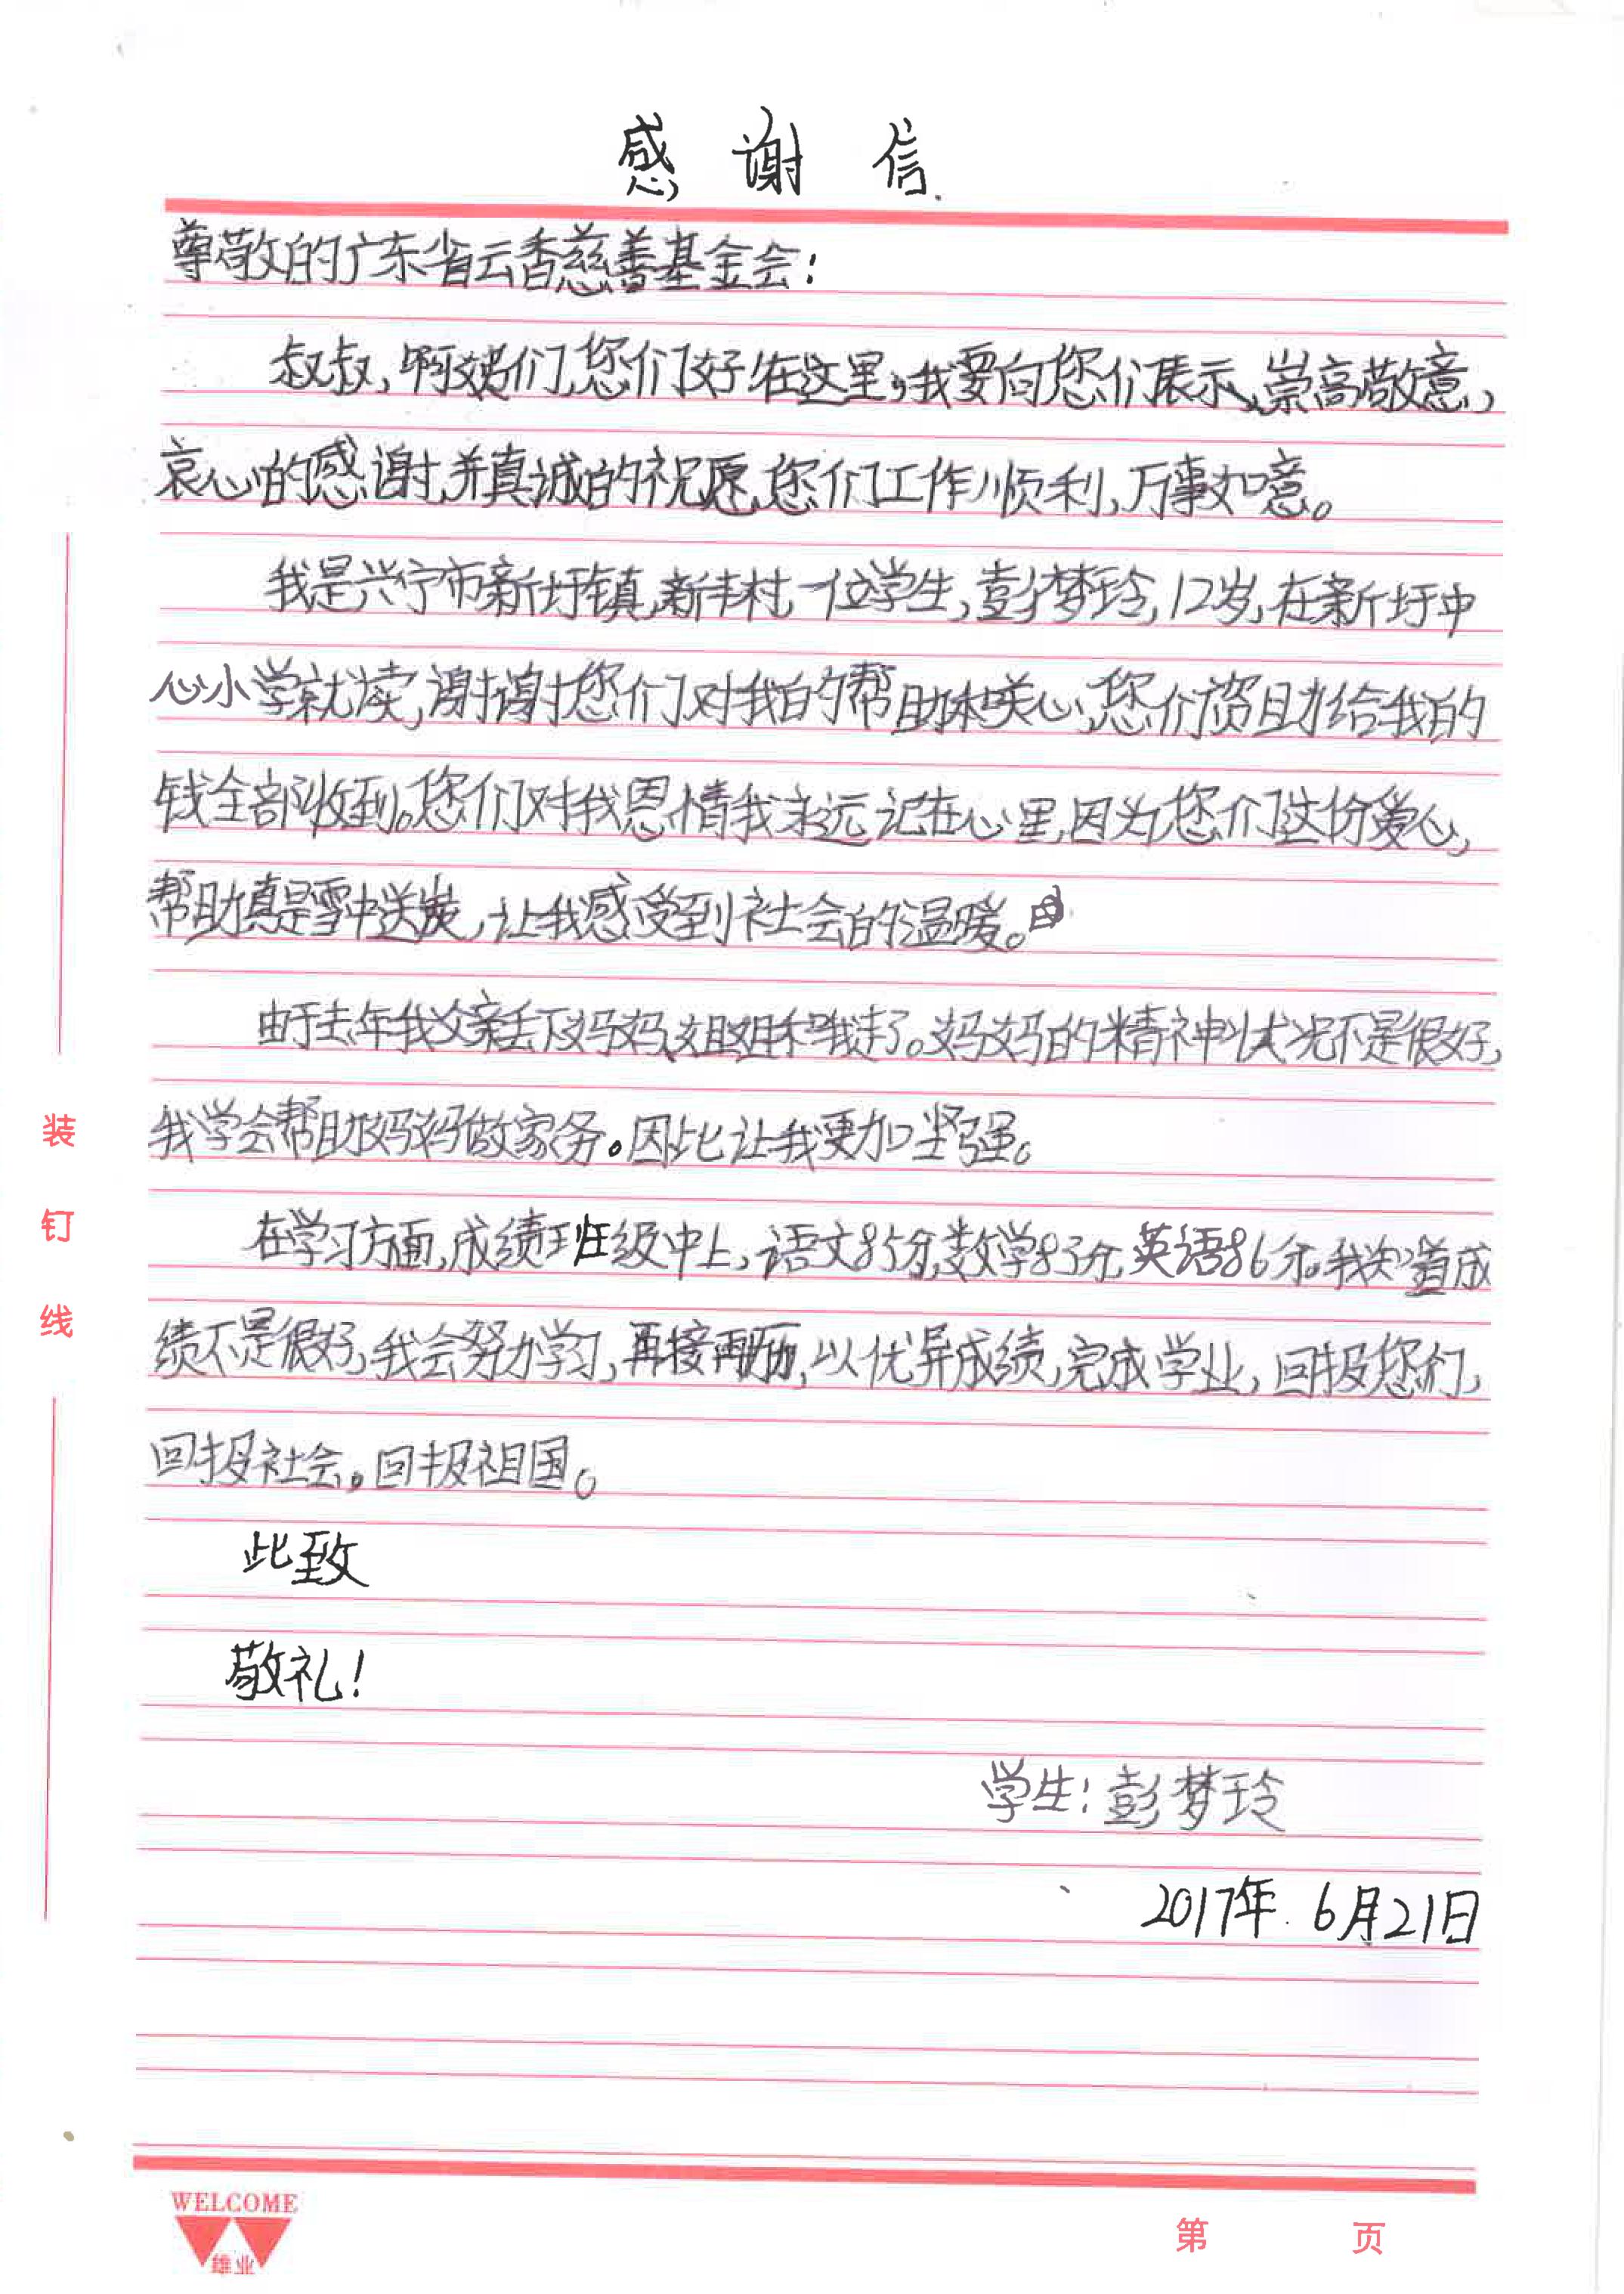 感谢信.
尊敬的广东省云香慈善基金会：
叔叔,啊姨们,您们好在这里,我要向您们表示、崇高敬意,
哀心的感谢,并真诚的祝愿,您们工作顺利,万事如意。
我是兴宁市新圩镇,新丰村,一位学生,彭梦玲,12岁,在新圩中
心小学就读,谢谢您们对我的帮助和关心,您们资助给我的
钱全部收到。您们对我恩情我永远记在心里,因为您们这份爱心,
帮助真是雪中送炭,让我感受到社会的温暖。
由于去年我父亲丢下妈妈、姐姐和我走了。妈妈的精神状况不是很好,
我学会帮助妈妈做家务。因此让我更加坚强。
在学习方面,成绩班级中上,语文85分,数学83分,英语86分。我知道成
绩不是很好,我会努力学习,再接再厉,以优异成绩,完成学业,回报您们,
回报社会。回报祖国。
此致
敬礼!
学生:彭梦玲
2017年.6月21日
装
钉
线
WELCOME
雄业
第 页